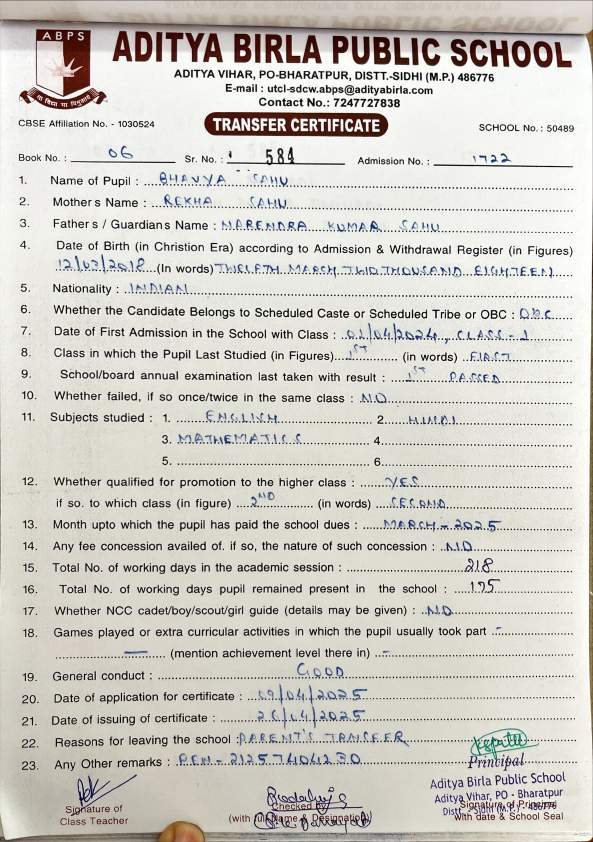 ABPS
ADITYA BIRLA PUBLIC SCHOOL
ADITYA VIHAR, PO-BHARATPUR, DISTT.-SIDHI (M.P.) 486776
E-mail : utcl-sdcw.abps@adityabirla.com
Contact No.: 7247727838
CBSE Affiliation No. - 1030524
TRANSFER CERTIFICATE
SCHOOL No. : 50489
Book No. : 06 Sr. No. : 584 Admission No. : 1722
1. Name of Pupil : BHAVYA SAHU
2. Mother's Name : REKHA SAHU
3. Father's / Guardian's Name : NARENDRA KUMAR SAHU
4. Date of Birth (in Christion Era) according to Admission & Withdrawal Register (in Figures)
12/03/2018 (In words) TWELFTH MARCH TWO THOUSAND EIGHTEEN
5. Nationality : INDIAN
6. Whether the Candidate Belongs to Scheduled Caste or Scheduled Tribe or OBC : OBC
7. Date of First Admission in the School with Class : 01/04/2024, CLASS-1
8. Class in which the Pupil Last Studied (in Figures) 1ST (in words) FIRST
9. School/board annual examination last taken with result : 1ST PASSED
10. Whether failed, if so once/twice in the same class : NO
11. Subjects studied : 1. ENGLISH 2. HINDI
3. MATHEMATICS 4.
5. 6.
12. Whether qualified for promotion to the higher class : YES
if so. to which class (in figure) 2ND (in words) SECOND
13. Month upto which the pupil has paid the school dues : MARCH-2025
14. Any fee concession availed of. if so, the nature of such concession : NO
15. Total No. of working days in the academic session : 218
16. Total No. of working days pupil remained present in the school : 175
17. Whether NCC cadet/boy/scout/girl guide (details may be given) : NO
18. Games played or extra curricular activities in which the pupil usually took part -
— (mention achievement level there in) -
19. General conduct : GOOD
20. Date of application for certificate : 09/04/2025
21. Date of issuing of certificate : 26/04/2025
22. Reasons for leaving the school : PARENT'S TRANSFER
23. Any Other remarks : PEN-21257404230
Principal
Aditya Birla Public School
Aditya Vihar, PO - Bharatpur
Distt.-Sidhi (M.P.)- 486776
Signature of
Class Teacher
Checked by
(with full Name & Designation)
Signature of Principal
with date & School Seal